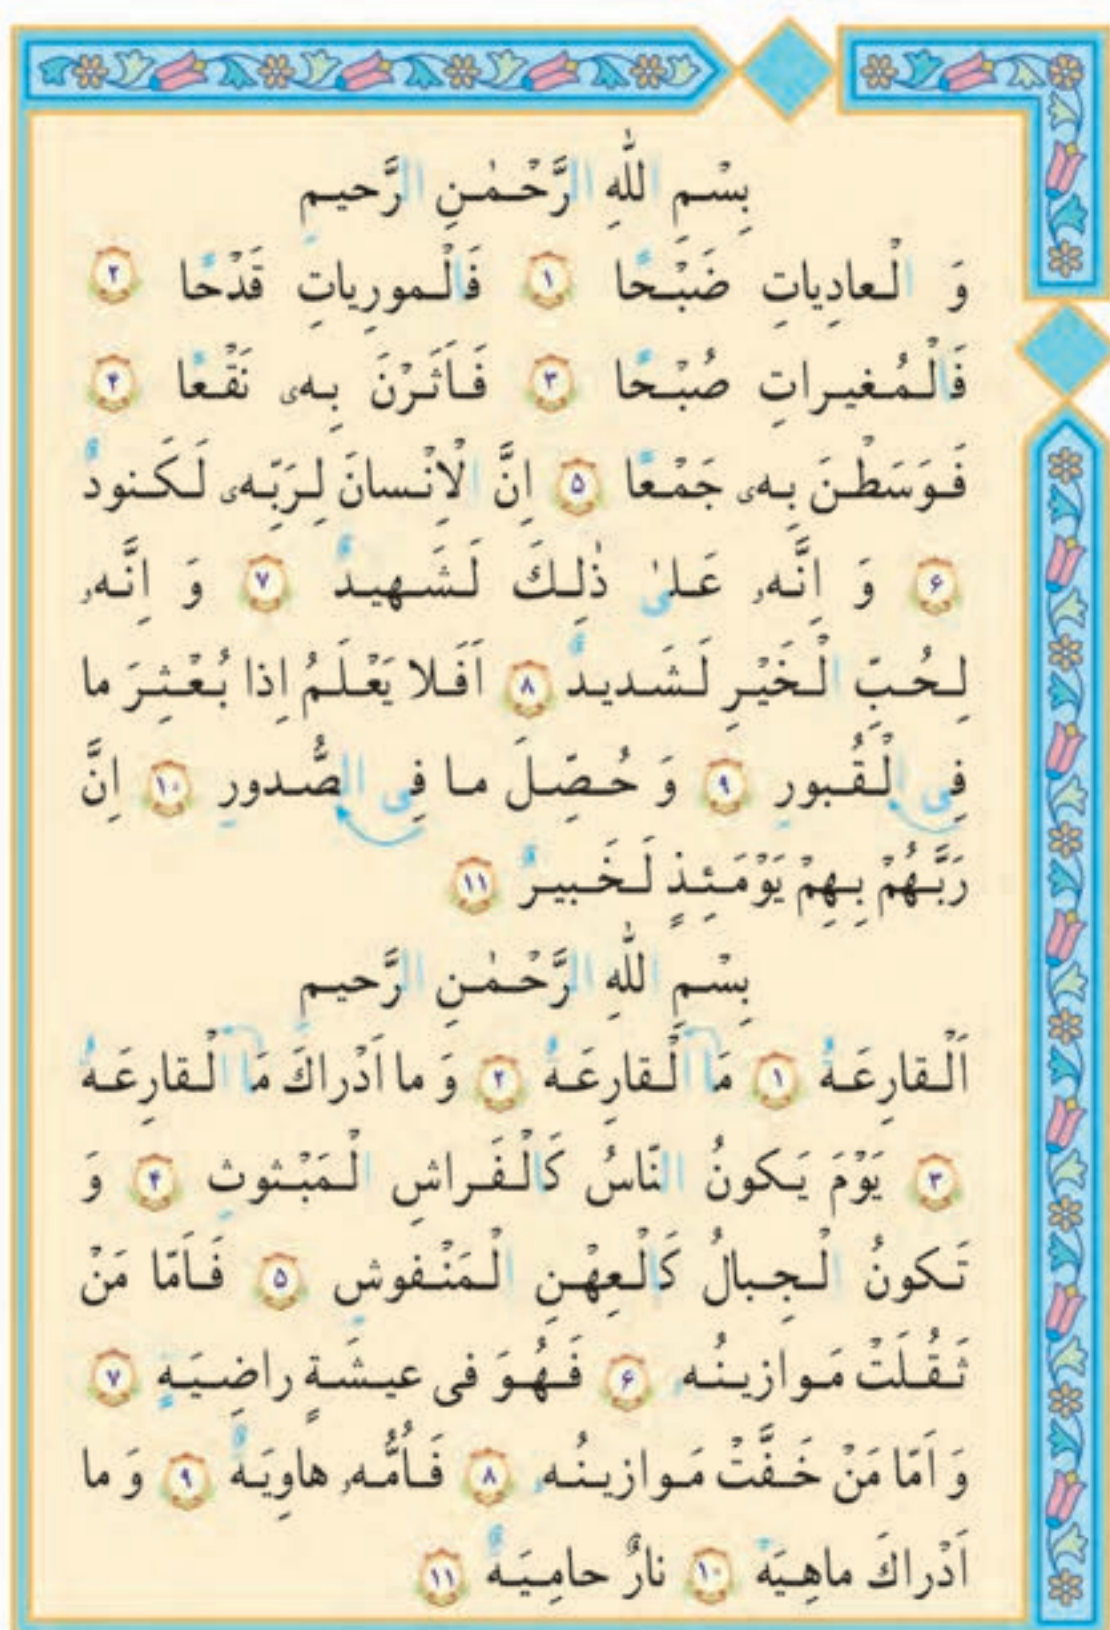 بِسْمِ اللّٰهِ الرَّحْمٰنِ الرَّحيمِ
وَ الْعادِياتِ ضَبْحًا ۱ فَالْمورِياتِ قَدْحًا ۲
فَالْمُغيراتِ صُبْحًا ۳ فَاَثَرْنَ بِهی نَقْعًا ۴
فَوَسَطْنَ بِهی جَمْعًا ۵ اِنَّ الْاِنْسانَ لِرَبِّهی لَكَنودٌ
۶ وَ اِنَّهُ عَلیٰ ذٰلِكَ لَشَهيدٌ ۷ وَ اِنَّهُ
لِحُبِّ الْخَيْرِ لَشَديدٌ ۸ اَفَلا يَعْلَمُ اِذا بُعْثِرَ ما
فِی الْقُبورِ ۹ وَ حُصِّلَ ما فِی الصُّدورِ ۱۰ اِنَّ
رَبَّهُمْ بِهِمْ يَوْمَئِذٍ لَخَبيرٌ ۱۱
بِسْمِ اللّٰهِ الرَّحْمٰنِ الرَّحيمِ
اَلْقارِعَةُ ۱ مَا الْقارِعَةُ ۲ وَ ما اَدْراكَ مَا الْقارِعَةُ
۳ يَوْمَ يَكونُ النّاسُ كَالْفَراشِ الْمَبْثوثِ ۴ وَ
تَكونُ الْجِبالُ كَالْعِهْنِ الْمَنْفوشِ ۵ فَاَمّا مَنْ
ثَقُلَتْ مَوازينُهُ ۶ فَهُوَ فی عيشَةٍ راضِيَةٍ ۷
وَ اَمّا مَنْ خَفَّتْ مَوازينُهُ ۸ فَاُمُّهُ هاوِيَةٌ ۹ وَ ما
اَدْراكَ ماهِيَهْ ۱۰ نارٌ حامِيَةٌ ۱۱